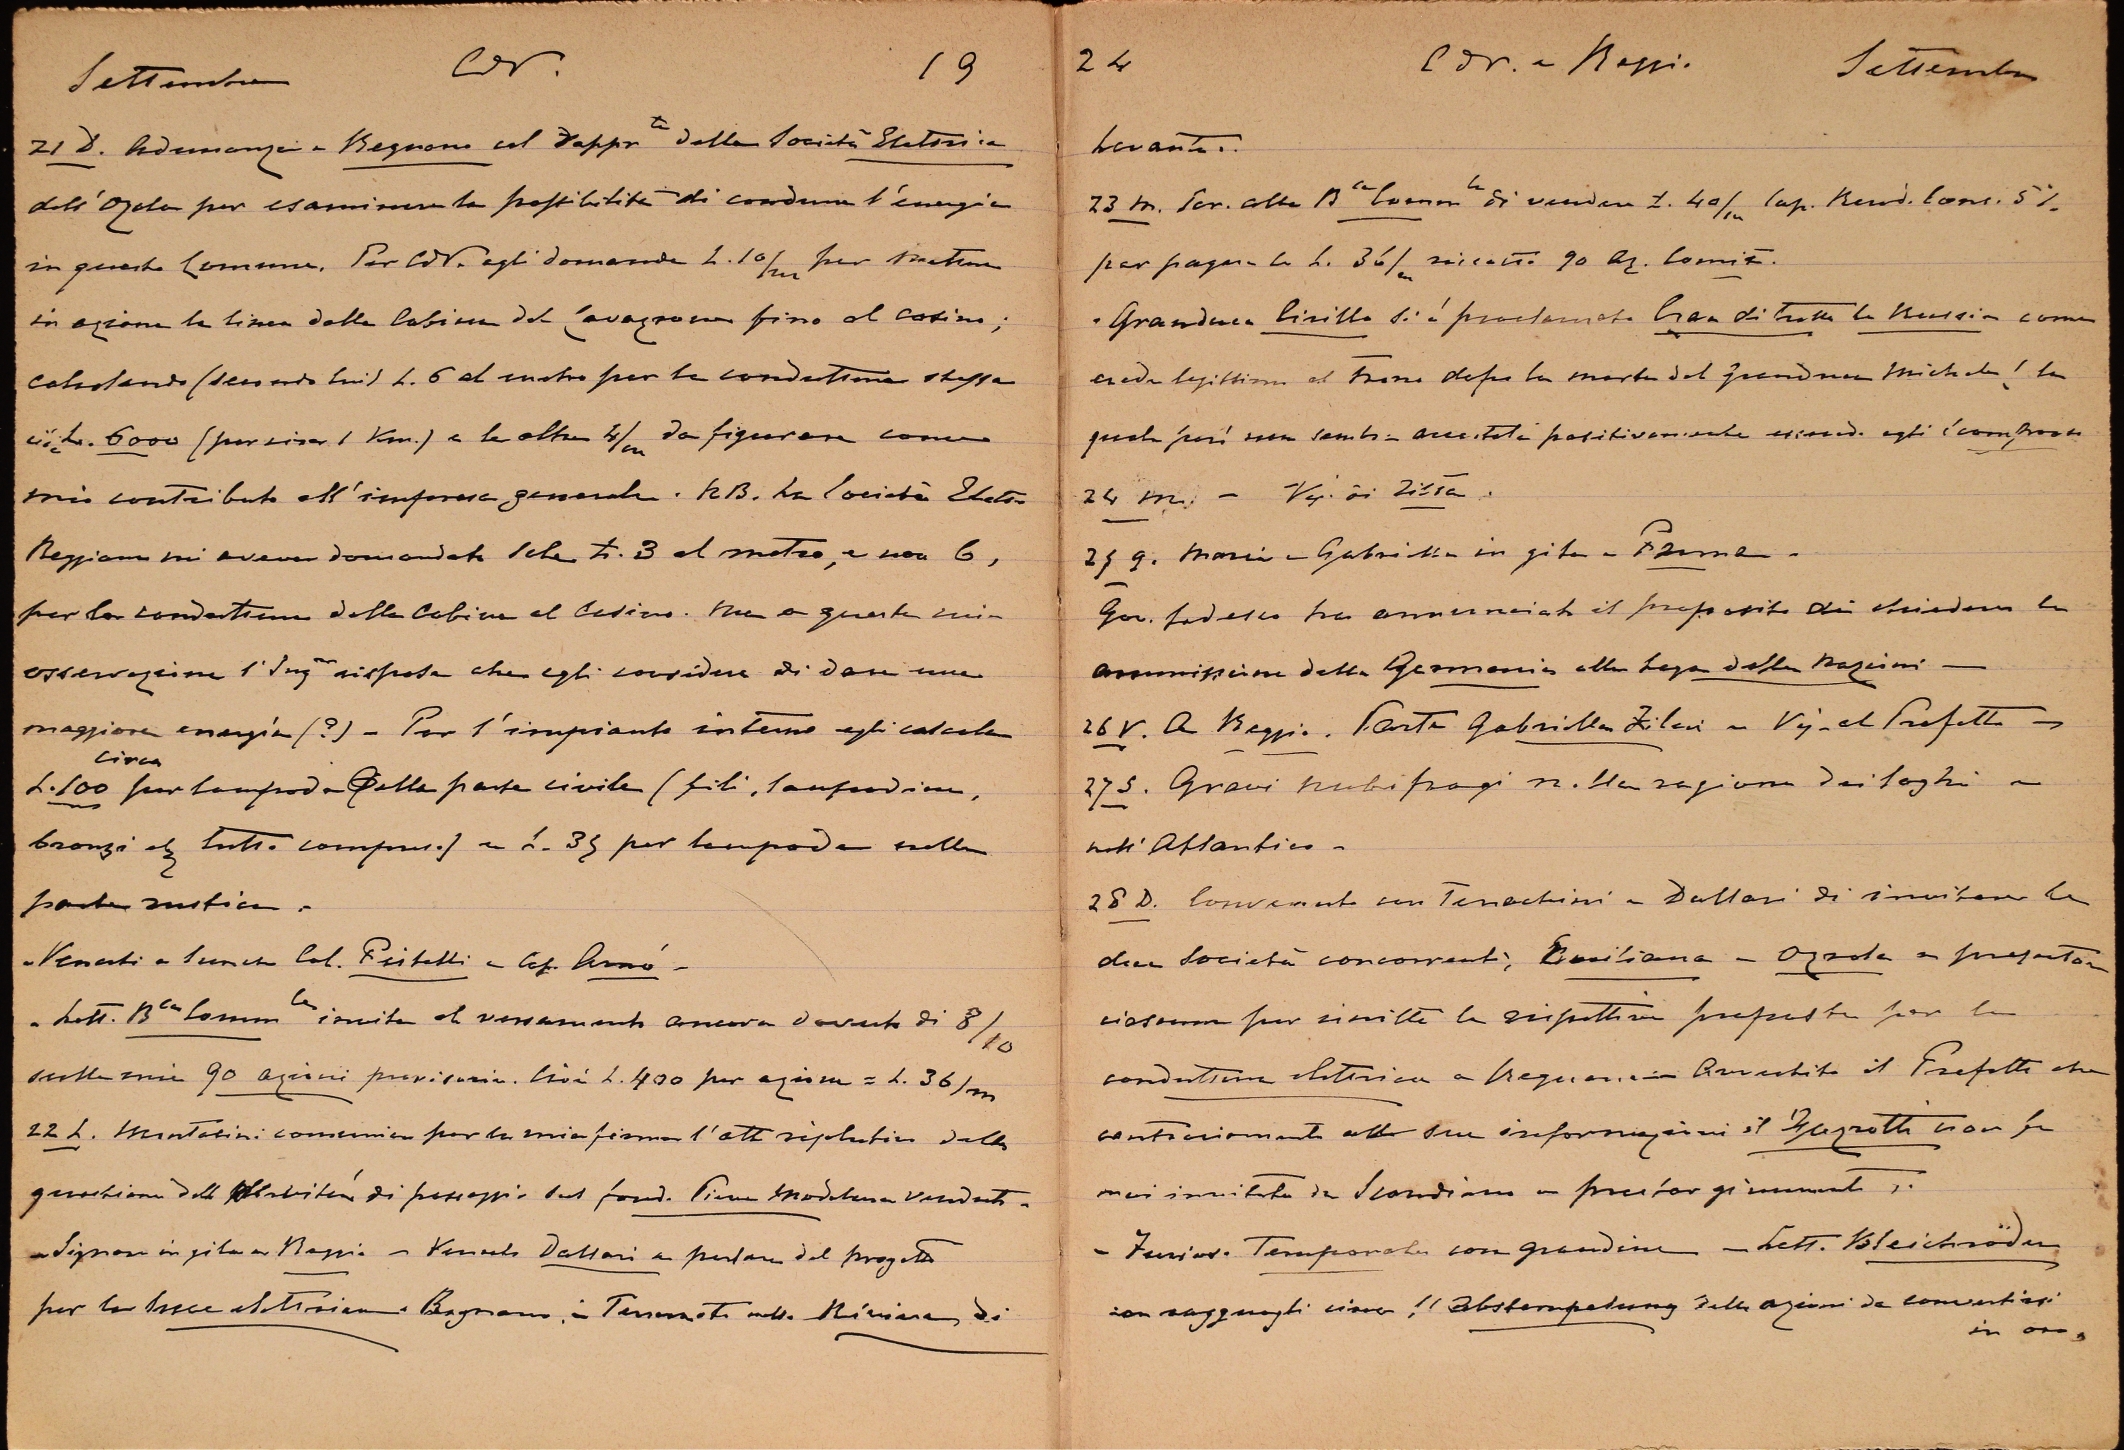 Settembre CdV. 19
21 D. Adunanza a Regnano col Rappr.te della Società Elettrica
dell'Ozola per esaminare la possibilità di condurre l'energia
in questo Comune. Per CdV. egli domanda L. 10/m per mettere
in azione la linea dalla Cabina del Cavazzone fino al Casino;
calcolando (secondo lui) L. 6 al metro per la conduttura stessa
cioè L. 6000 (per circa 1 Km.) e le altre 4/m da figurare come
mio contributo all'impresa generale. NB. La Società Elettr.
Reggiana mi aveva domandato sole L. 3 al metro, e non 6,
per la conduttura dalla Cabina al Casino. Ma a questa mia
osservazione l'Ingre rispose che egli considera di dare una
maggiore energia (?) - Per l'impianto interno egli calcola
circa
L. 100 per lampada Qella parte civile (fili, lampadine,
bronzi etc tutto compreso) e L. 35 per lampada nella
parte rustica.
- Venuti a cena Col. Fritelli e Cap. Arnó -
- Lett. Bca Commle invita al versamento ancora dovuto di 8/10
sulle mie 90 azioni provvisorie. Cioè L. 400 per azione = L. 36/m
22 L. comunica per la mia firma l'atto risolutivo della
questione della di passaggio sul fond. Pieve Modolena venduto -
- Signore in gita a Reggio - Venuto Dallari a parlare del progetto
per la luce elettrica a Regnano. - Terremoto nella Riviera di
24 CdV. e Reggio Settembre
Levante.
23 M. Scr. alla Bca Commle di vendere L. 40/m Cap. Rend. Cons. 5%
per pagare le L. 36/m riscatto 90 Az. Commit.
- Granduca Cirillo si è proclamato Czar di tutte le Russie come
erede legittimo al trono dopo la morte del Granduca Michele! la
quale però non sembra accertata positivamente essendo egli scomparso
24 M. - Vis. di Zissa.
25 G. Maria e Gabriella in gita a Parma -
Gov. tedesco ha annunciato il proposito di chiedere la
ammissione della Germania alla Lega delle Nazioni -
26 V. A Reggio. Parte Gabriella Zileri - Vis. al Prefetto -
27 S. Gravi nubifragi nella regione dei laghi e
nell'Atlantico -
28 D. Convenuto con Terrachini e Dallari di invitare le
due Società concorrenti, Emiliana e Ozola a presentare
ciascuna per iscritto le rispettive proposte per la
conduttura elettrica a Regnano - Avvertito il Prefetto che
contrariamente alle sue informazioni il non fu
mai invitato da Scandiano a prestar giuramento.
- Furioso Temporale con grandine - Lett. Bleichröder
con ragguagli circa !! Abstempelung delle azioni da convertirsi
in oro.